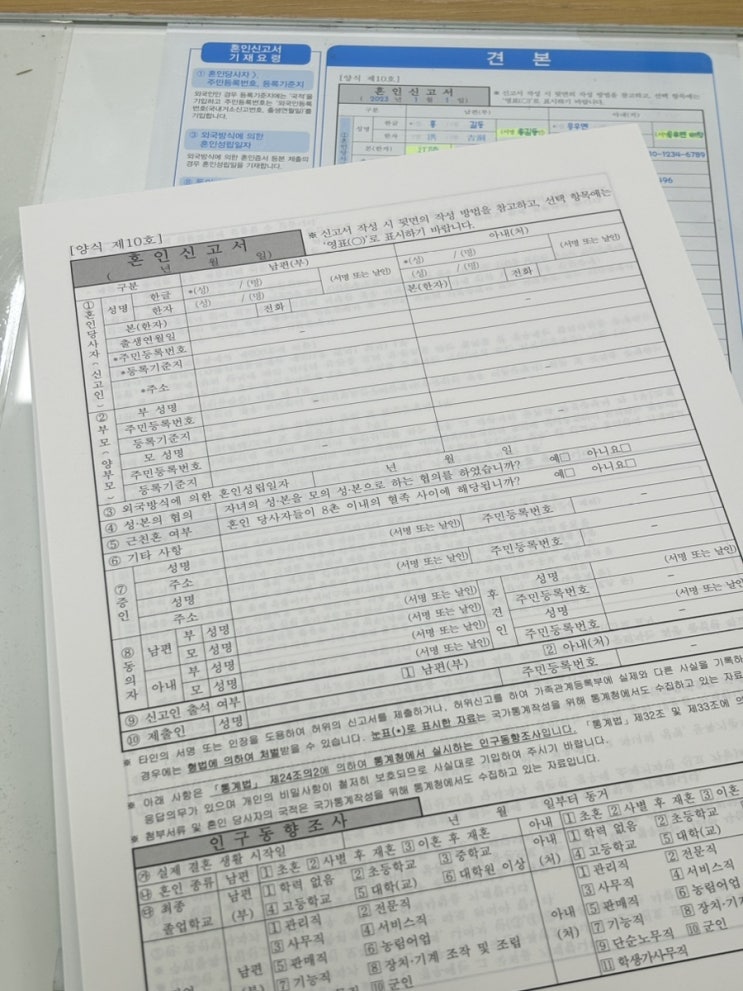 혼인신고서
기재요령
① 혼인당사자
주민등록번호, 등록기준지
외국인인 경우 등록기준지에는 '국적'을
기입하고 주민등록번호는 '외국인등록
번호(국내거소신고번호, 출생연월일)'를
기입합니다.
③ 외국방식에 의한
혼인성립일자
외국방식에 의한 혼인증서 등본 제출의
경우 혼인성립일을 기재합니다.
견 본
[양식 제10호]
혼 인 신 고 서
( 2023 년 1 월 1 일)
※ 신고서 작성 시 뒷면의 작성 방법을 참고하고, 선택 항목에는
'영표(○)'로 표시하기 바랍니다.
구분 남편(부) 아내(처)
성명 한글 홍 길동
한자 洪 吉洞
본(한자)
[양식 제10호]
혼 인 신 고 서
( 년 월 일)
※ 신고서 작성 시 뒷면의 작성 방법을 참고하고, 선택 항목에는
'영표(○)'로 표시하기 바랍니다.
구분 남편(부) 아내(처)
① 혼인당사자(신고인)
성명 한글 *(성) / (명) (서명 또는 날인) *(성) / (명) (서명 또는 날인)
한자 (성) / (명) (성) / (명)
본(한자) 전화 본(한자) 전화
출생연월일
*주민등록번호 - -
*등록기준지
*주소
② 부모(양부모)
부 성명
주민등록번호 - -
등록기준지
모 성명
주민등록번호 - -
등록기준지
③ 외국방식에 의한 혼인성립일자 년 월 일
④ 성·본의 협의 자녀의 성·본을 모의 성·본으로 하는 협의를 하였습니까? 예□ 아니요□
⑤ 근친혼 여부 혼인 당사자들이 8촌 이내의 혈족 사이에 해당됩니까? 예□ 아니요□
⑥ 기타 사항
⑦ 증인
성명 (서명 또는 날인) 주민등록번호 -
주소
성명 (서명 또는 날인) 주민등록번호 -
주소
⑧ 동의자
남편 부 성명 (서명 또는 날인) 후견인 성명 (서명 또는 날인)
모 성명 (서명 또는 날인) 주민등록번호 -
아내 부 성명 (서명 또는 날인) 성명 (서명 또는 날인)
모 성명 (서명 또는 날인) 주민등록번호 -
⑨ 신고인 출석 여부 1 남편(부) 2 아내(처)
⑩ 제출인 성명 주민등록번호 -
※ 타인의 서명 또는 인장을 도용하여 허위의 신고서를 제출하거나, 허위신고를 하여 가족관계등록부에 실제와 다른 사실을 기록하
경우에는 형법에 의하여 처벌받을 수 있습니다. 눈표(*)로 표시한 자료는 국가통계작성을 위해 통계청에서도 수집하고 있는 자료
※ 아래 사항은 「통계법」 제24조의2에 의하여 통계청에서 실시하는 인구동향조사입니다. 「통계법」제32조 및 제33조에 의
응답의무가 있으며 개인의 비밀사항이 철저히 보호되므로 사실대로 기입하여 주시기 바랍니다.
※ 첨부서류 및 혼인 당사자의 국적은 국가통계작성을 위해 통계청에서도 수집하고 있는 자료입니다.
인구동향조사
㉮ 실제 결혼 생활 시작일 년 월 일부터 동거
㉯ 혼인 종류 남편 1 초혼 2 사별 후 재혼 3 이혼 후 재혼 아내 1 초혼 2 사별 후 재혼 3 이혼
㉰ 최종
졸업학교
남편
(부)
1 학력 없음 2 초등학교 3 중학교
4 고등학교 5 대학(교) 6 대학원 이상
아내
(처)
1 학력 없음 2 초등학교
4 고등학교 5 대학(교)
남편
1 관리직 2 전문직
3 사무직 4 서비스직
5 판매직 6 농림어업
7 기능직 8 장치·기계 조작 및 조립
10 군인
아내
(처)
1 관리직 2 전문직
3 사무직 4 서비스직
5 판매직 6 농림어업
7 기능직 8 장치·기
9 단순노무직 10 군인
11 학생가사무직